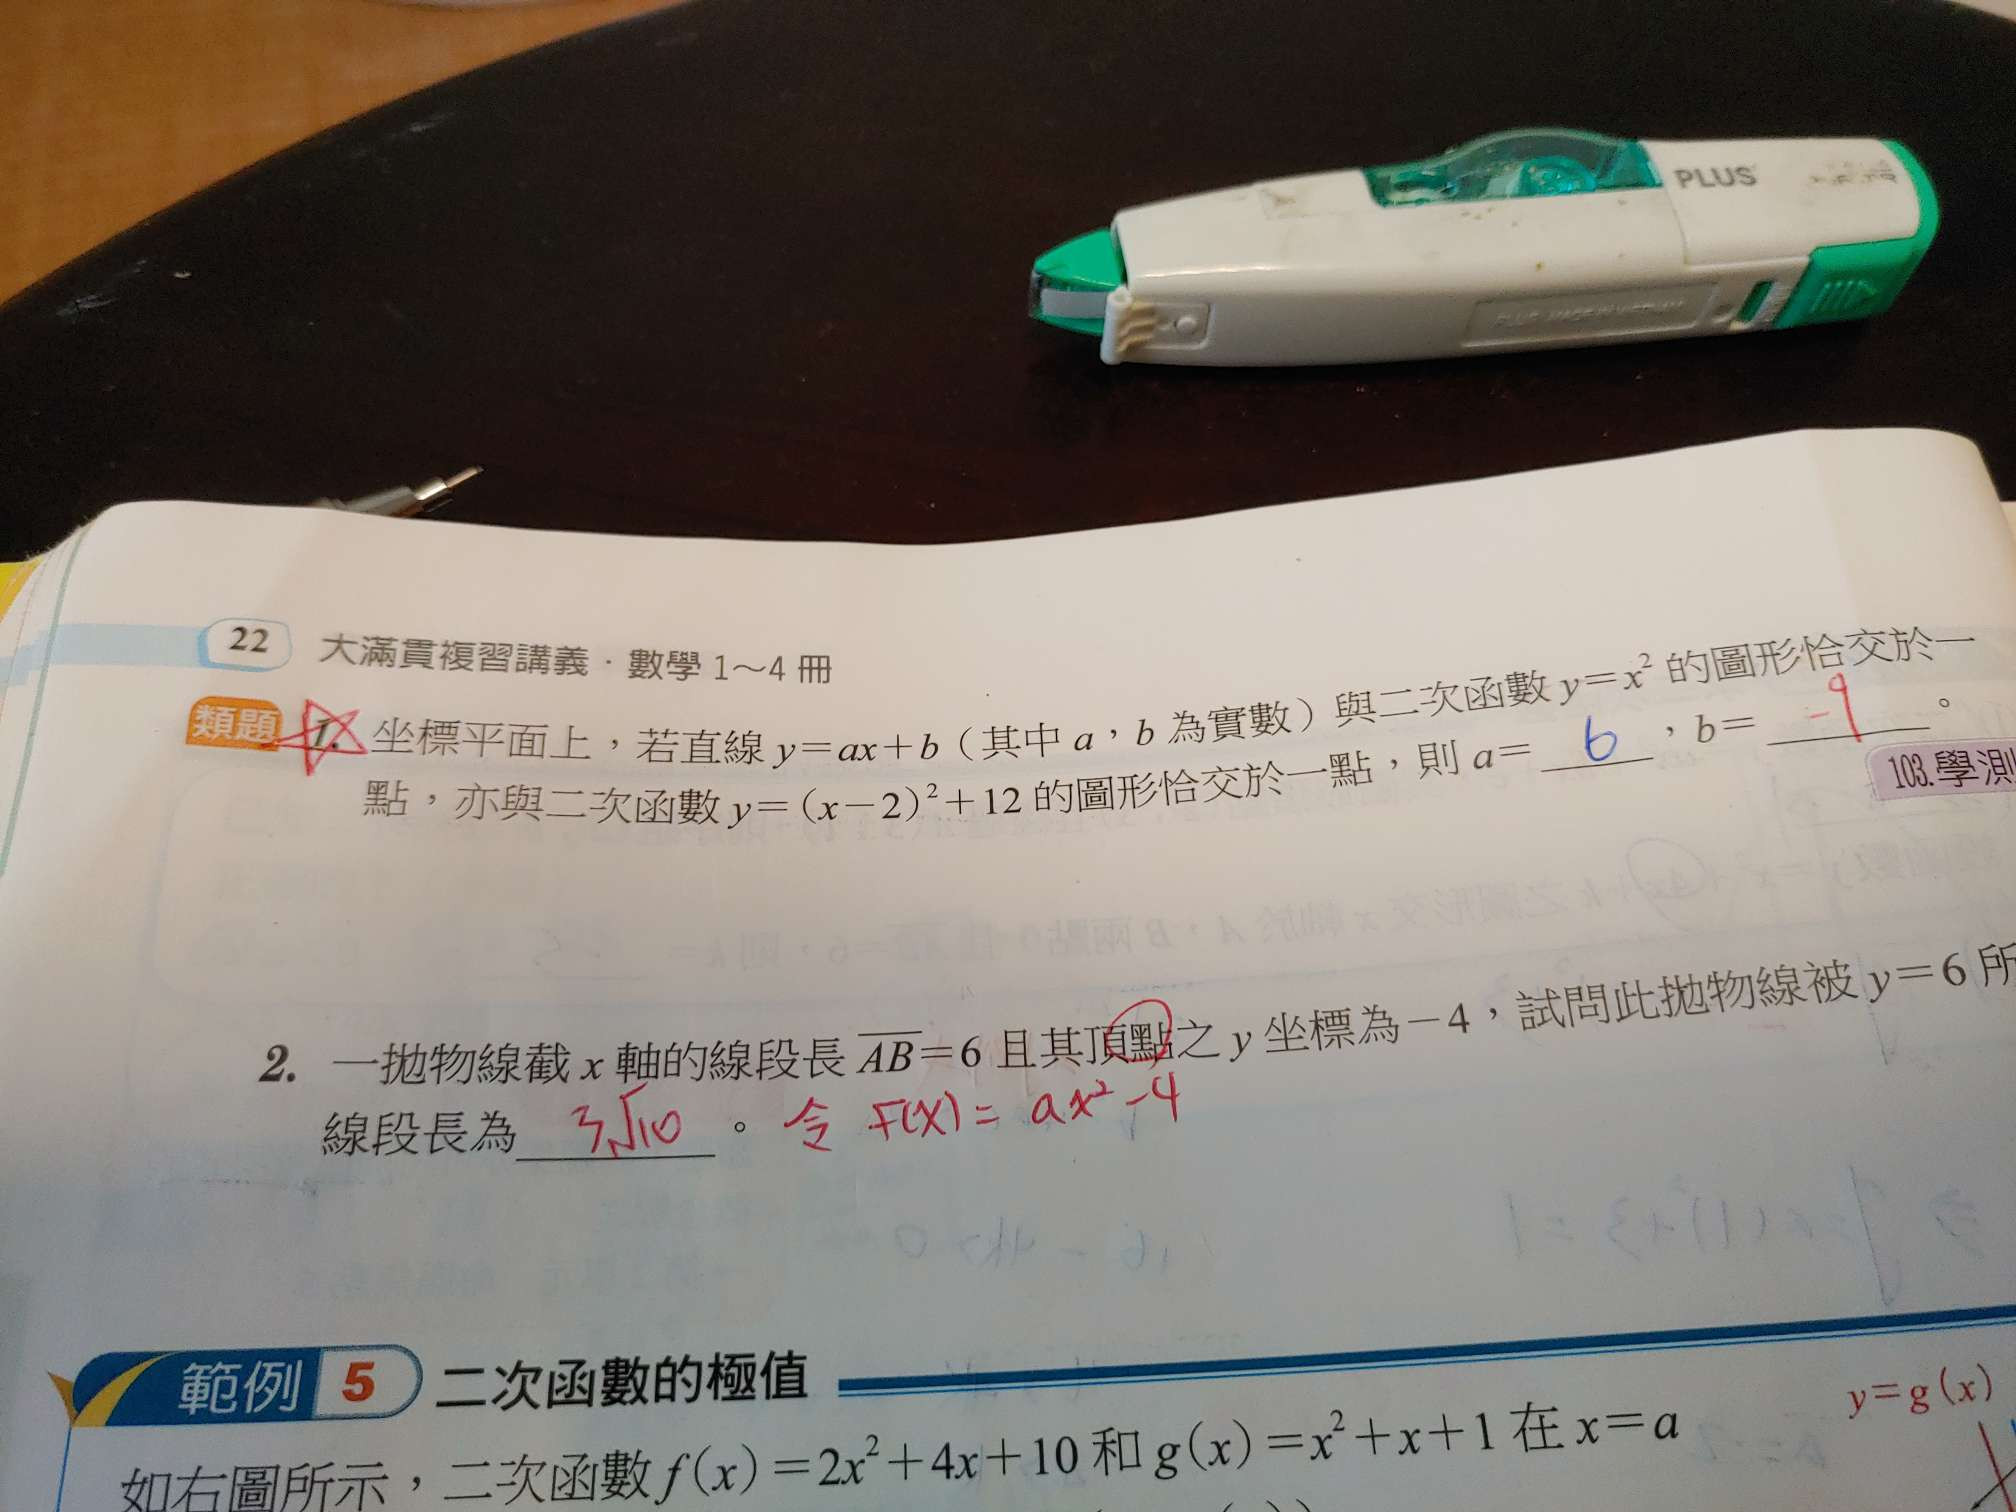 PLUS
22 大滿貫複習講義．數學 1～4 冊
類題 1. 坐標平面上，若直線 y＝ax＋b（其中 a，b 為實數）與二次函數 y＝x² 的圖形恰交於一
點，亦與二次函數 y＝(x－2)²＋12 的圖形恰交於一點，則 a＝ 6 ，b＝ -9 。
103.學測
2. 一拋物線截 x 軸的線段長 AB＝6 且其頂點之 y 坐標為－4，試問此拋物線被 y＝6 所
線段長為 3√10 。 令 F(x) = ax²-4
範例 5 二次函數的極值
y＝g(x)
如右圖所示，二次函數 f(x)＝2x²＋4x＋10 和 g(x)＝x²＋x＋1 在 x＝a